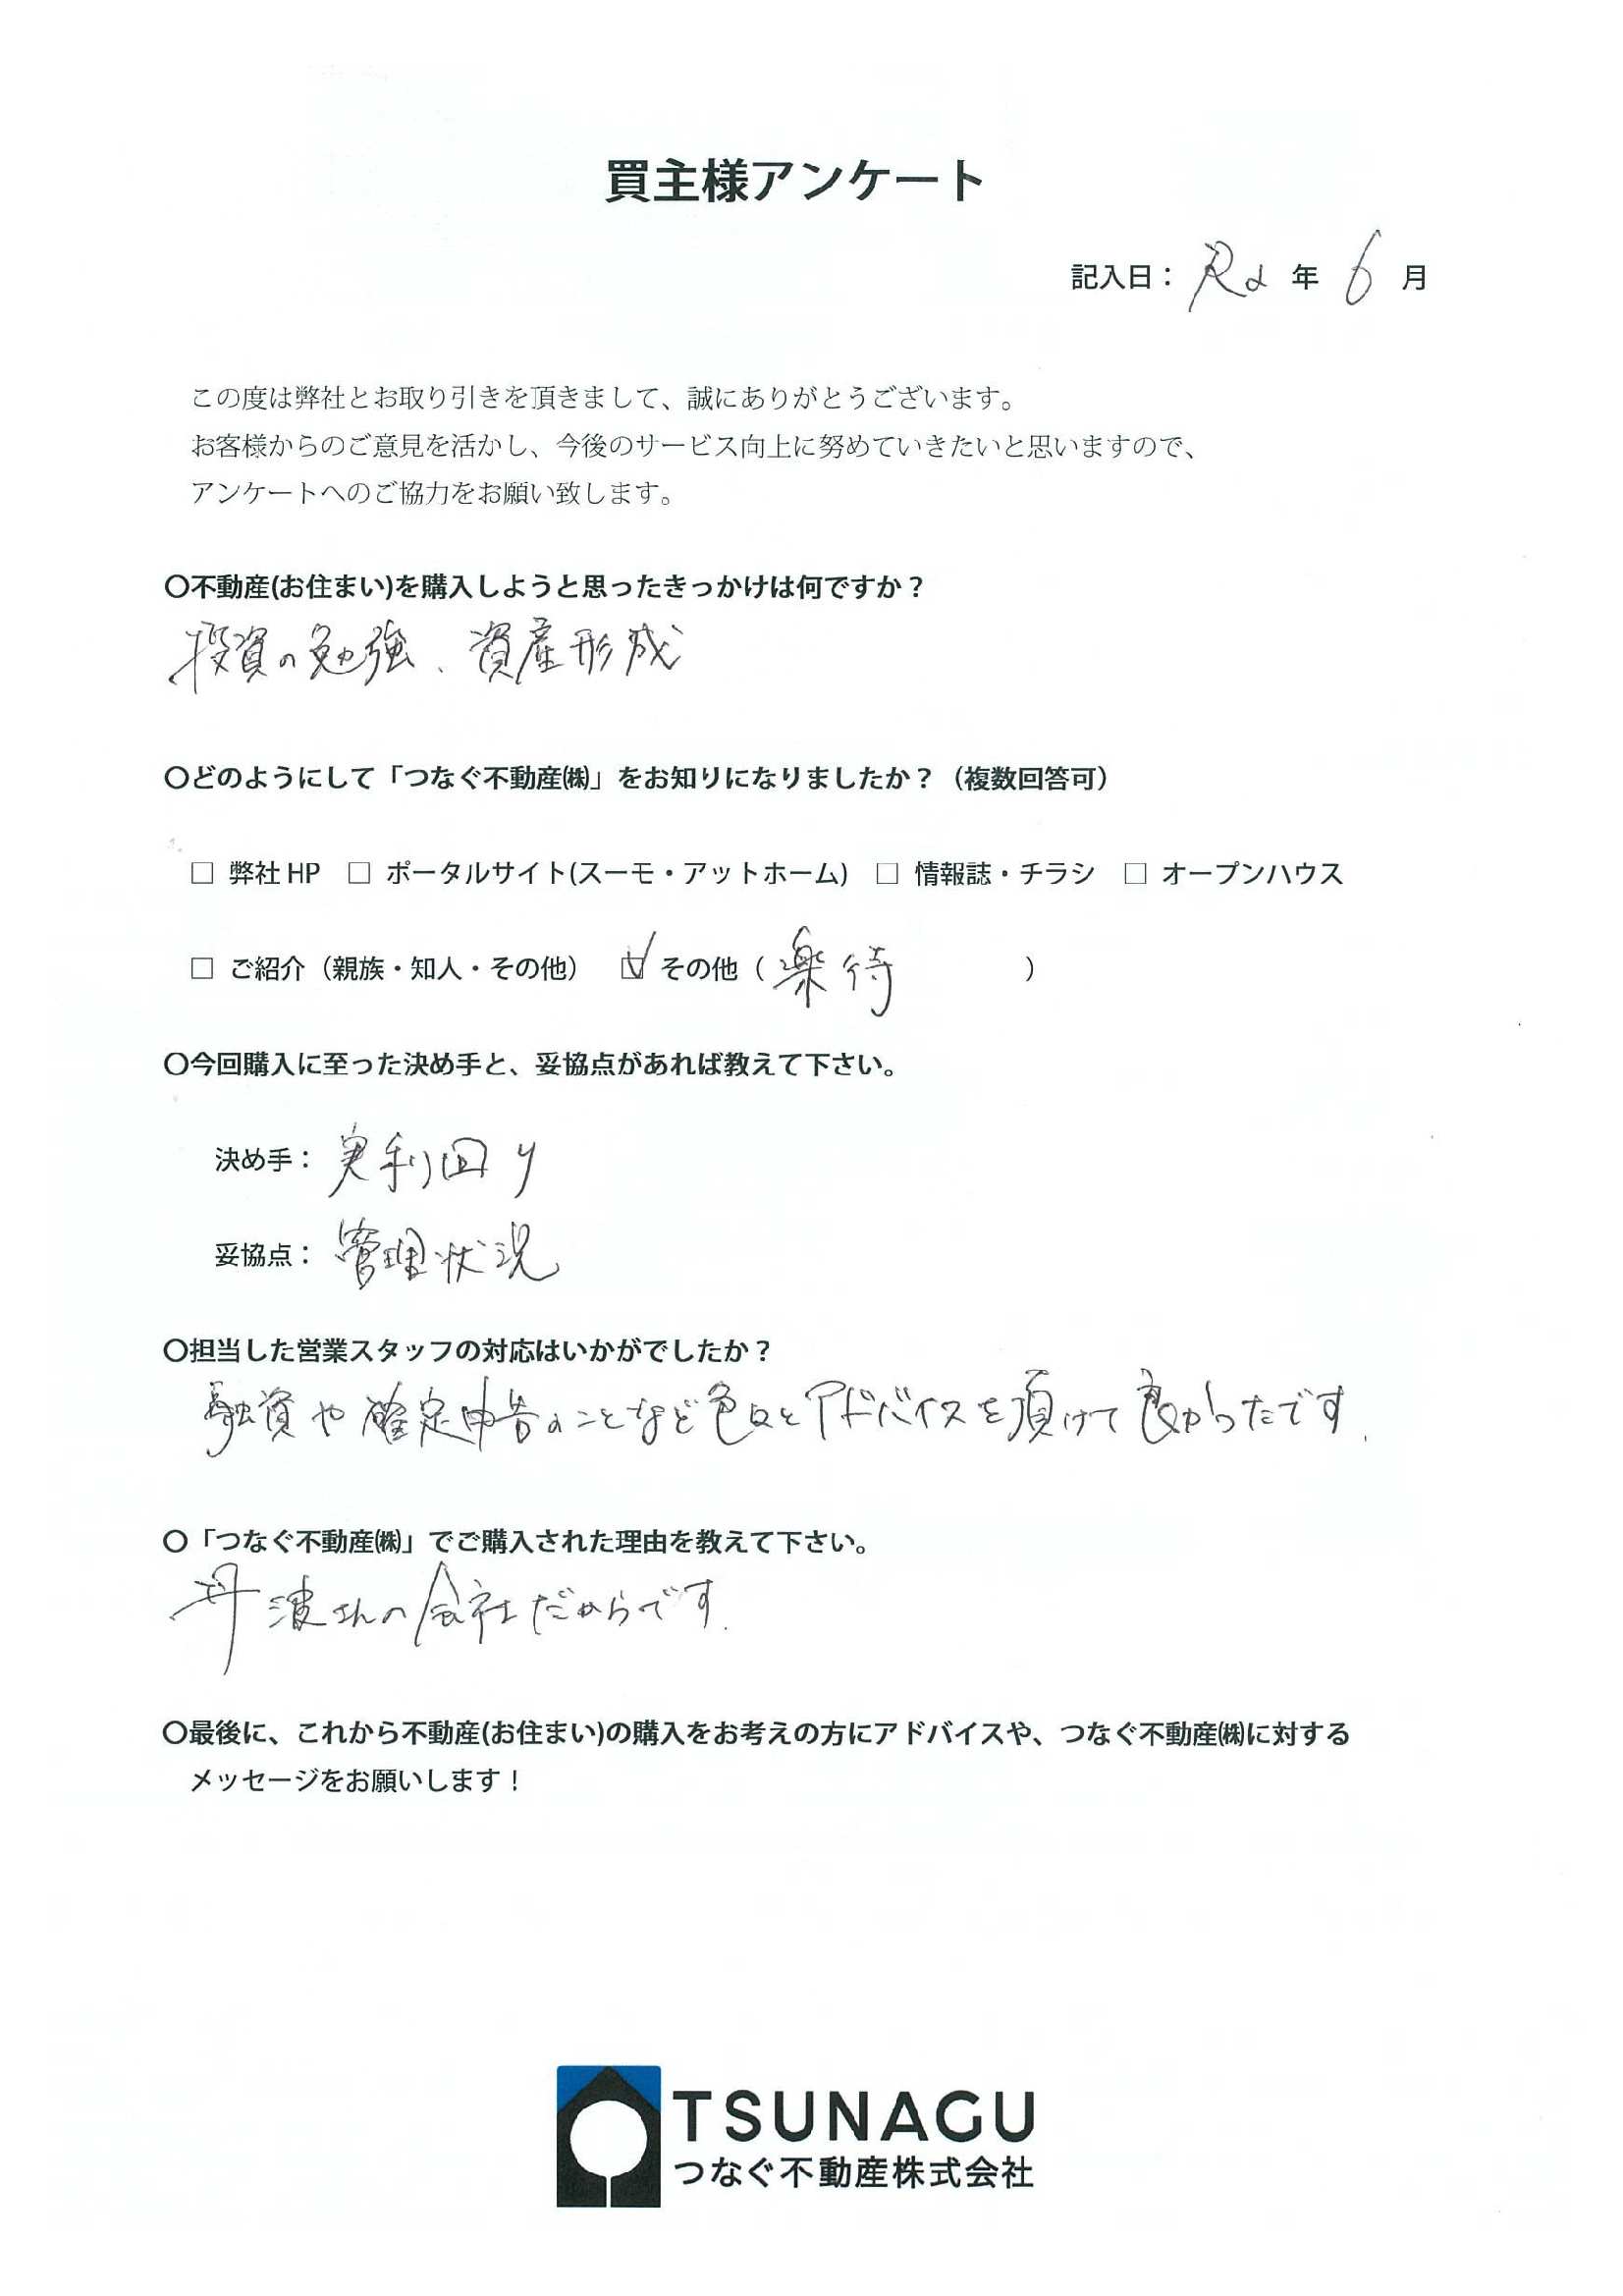 買主様アンケート
記入日： R2 年 6 月
この度は弊社とお取り引きを頂きまして、誠にありがとうございます。
お客様からのご意見を活かし、今後のサービス向上に努めていきたいと思いますので、
アンケートへのご協力をお願い致します。
〇不動産(お住まい)を購入しようと思ったきっかけは何ですか？
投資の勉強、資産形成
〇どのようにして「つなぐ不動産㈱」をお知りになりましたか？（複数回答可）
□ 弊社 HP □ ポータルサイト(スーモ・アットホーム) □ 情報誌・チラシ □ オープンハウス
□ ご紹介（親族・知人・その他） ☑ その他（楽待 ）
〇今回購入に至った決め手と、妥協点があれば教えて下さい。
決め手： 実利回り
妥協点： 管理状況
〇担当した営業スタッフの対応はいかがでしたか？
融資や確定申告のことなど色々とアドバイスを頂けて良かったです。
〇「つなぐ不動産㈱」でご購入された理由を教えて下さい。
丹波さんの会社だからです。
〇最後に、これから不動産(お住まい)の購入をお考えの方にアドバイスや、つなぐ不動産㈱に対する
メッセージをお願いします！
TSUNAGU
つなぐ不動産株式会社